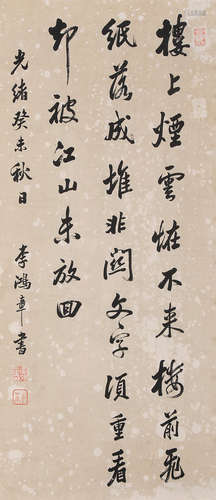 樓上煙雲恠不來樓前飛
紙落成堆非關文字須重看
却被江山未放回
光緒癸未秋日
李鴻章書